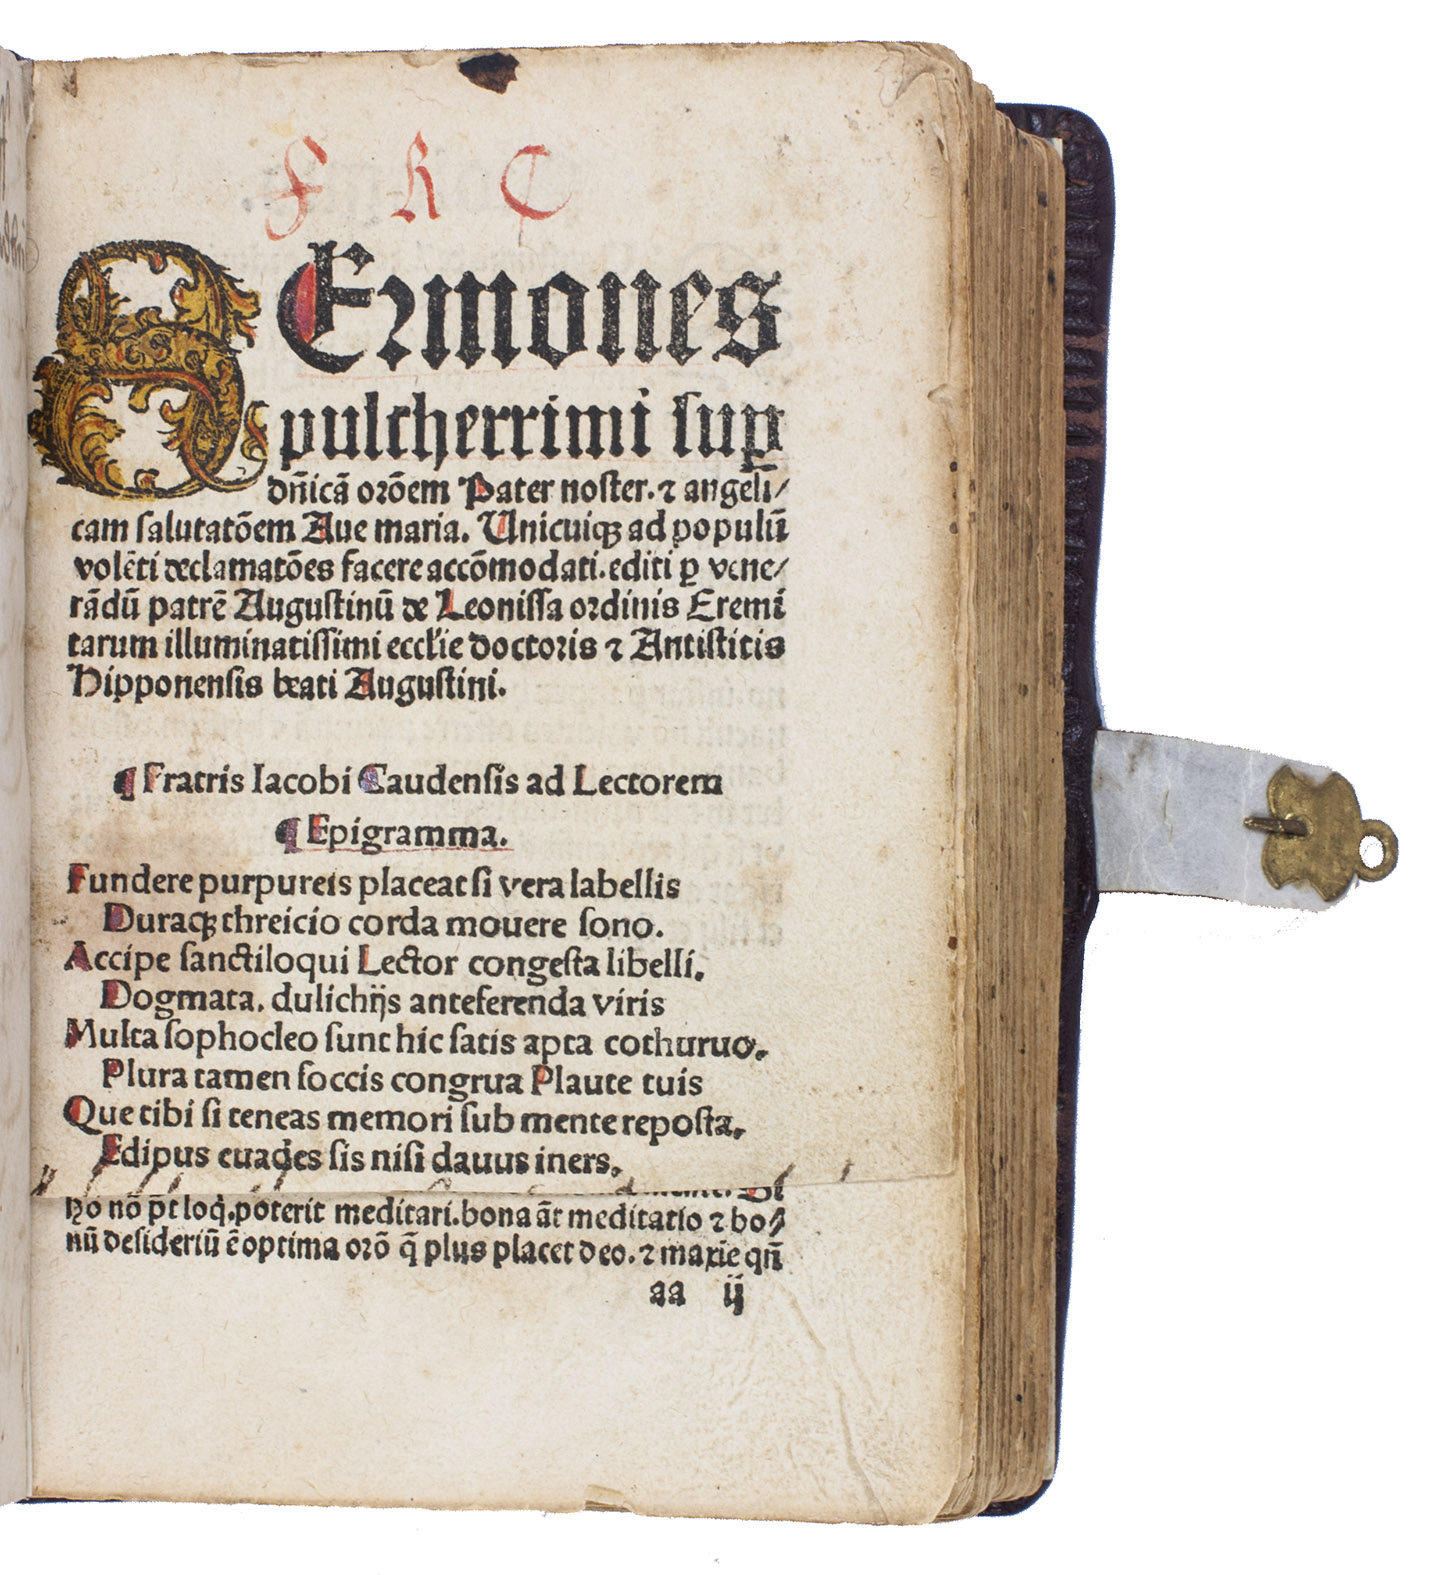 F R C
SErmones
pulcherrimi suꝑ
dn̄icā orōem Pater noster. ⁊ angeli/
cam salutatōem Aue maria. Unicuiqꝫ ad populū
volēti declamatōes facere accōmodati. editi ꝑ vene/
rādū patrē Augustinū de Leonissa ordinis Eremi
tarum illuminatissimi eccl̄ie doctoris ⁊ Antistitis
Hipponensis beati Augustini.
¶ Fratris Iacobi Gaudensis ad Lectorem
¶ Epigramma.
Fundere purpureis placeat si vera labellis
Duraqꝫ threicio corda mouere sono.
Accipe sanctiloqui Lector congesta libelli.
Dogmata. dulichijs anteferenda viris
Multa sophocleo sunt hic satis apta cothuruo.
Plura tamen soccis congrua Plaute tuis
Que tibi si teneas memori sub mente reposta.
Edipus euades sis nisi dauus iners.
hō nō pōt loq̇. poterit meditari. bona āt meditatio ⁊ bo/
nū desideriū ē optima orō q̄ plus placet deo. ⁊ maxīe qn̄
aa ij